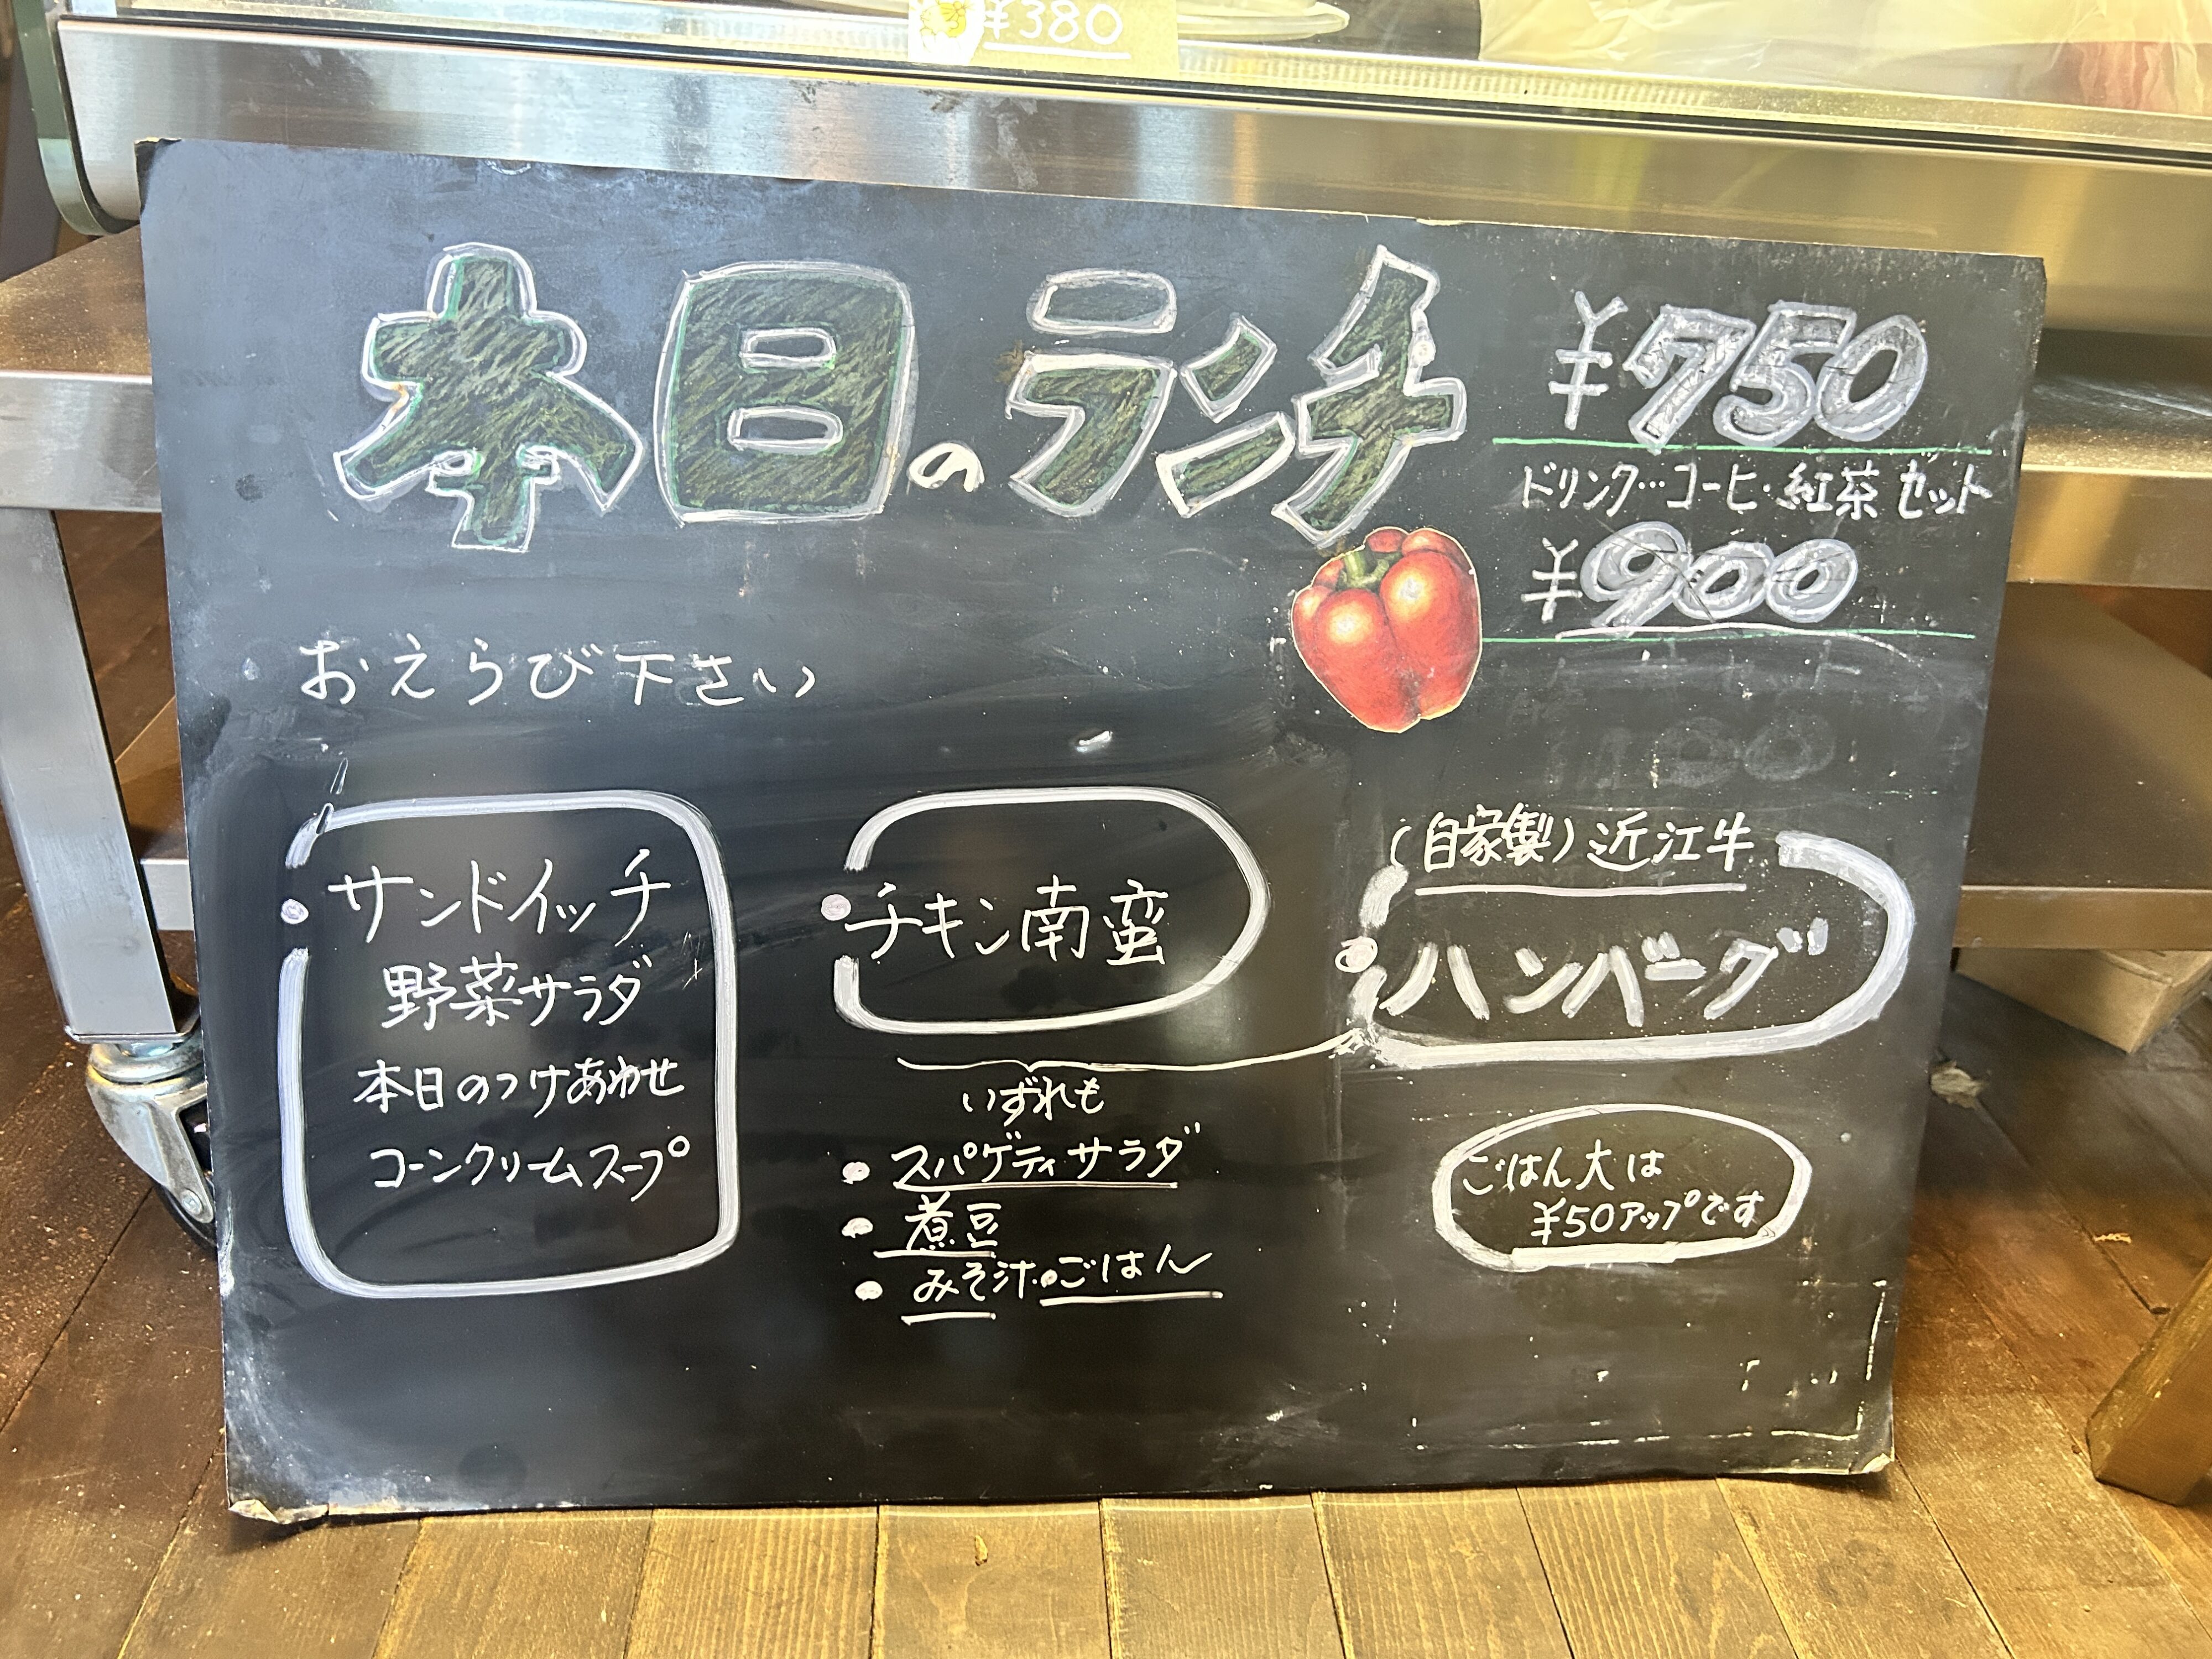 ¥380
本日のランチ
¥750
ドリンク…コーヒ・紅茶 セット
¥900
おえらび下さい
・サンドイッチ
野菜サラダ
本日のつけあわせ
コーンクリームスープ
・チキン南蛮
(自家製)近江牛
・ハンバーグ
いずれも
・スパゲティサラダ
・煮豆
・みそ汁・ごはん
ごはん大は
¥50アップです